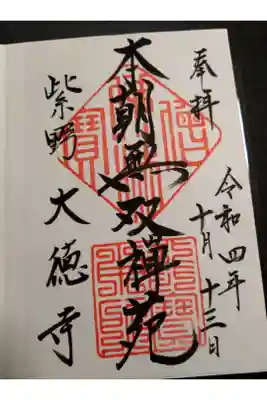 奉拝
令和四年
十月十三日
本朝無双禅苑
紫野
大徳寺